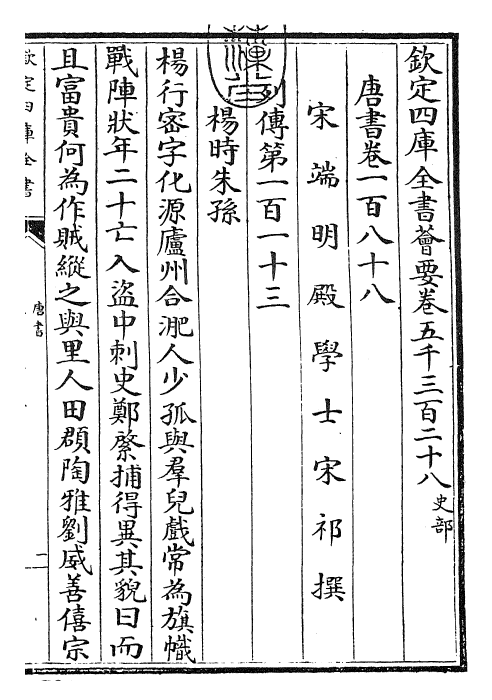 欽定四庫全書薈要卷五千三百二十八史部
唐書卷一百八十八
宋端明殿學士宋祁撰
列傳第一百一十三
楊時朱孫
楊行密字化源廬州合淝人少孤與羣兒戲常為旗幟
戰陣狀年二十亡入盜中刺史鄭棨捕得異其貌曰而
且富貴何為作賊縱之與里人田頵陶雅劉威善僖宗
欽定四庫全書
唐書